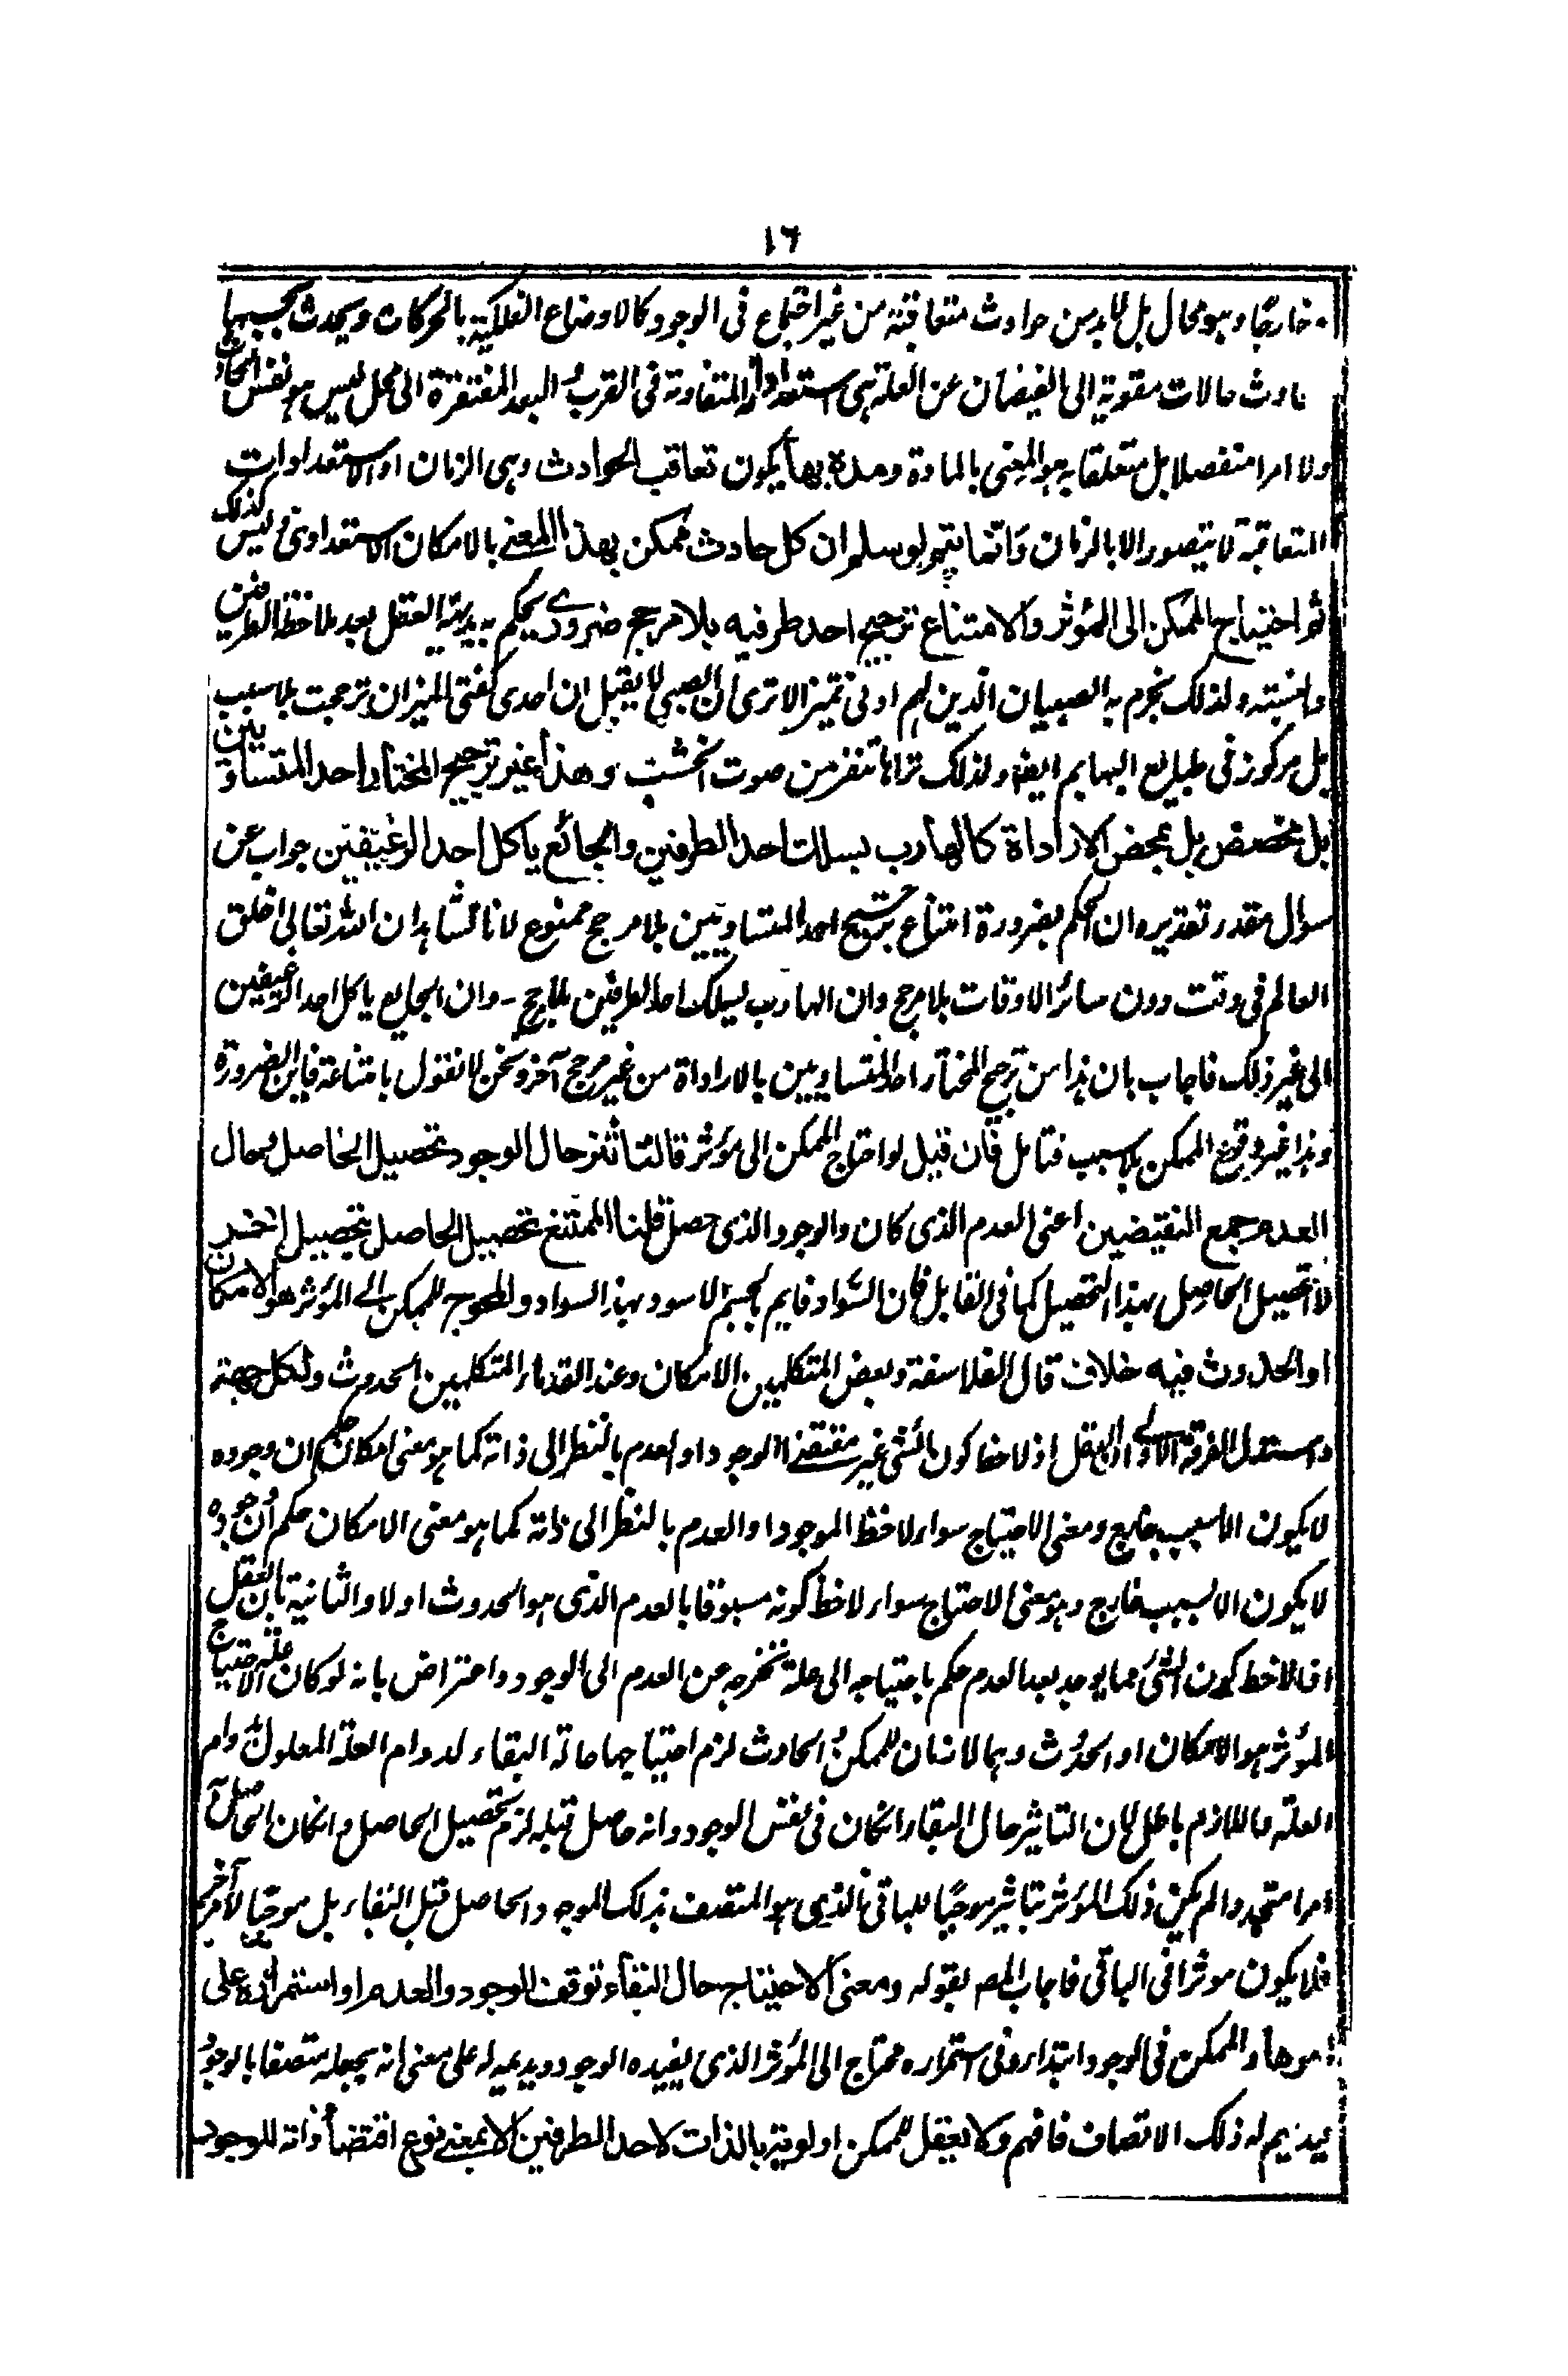 ١٦
خارجًا وهو محال بل لابد من حوادث متعاقبة من غير اجتماع فى الوجود كالاوضاع الفلكية بالحركات ويحدث بحسبها
حادث حالات مقوية الى الفيضان عن العلة هى استعداداته المتفاوتة فى القرب والبعد المفتقرة الى محل ليس هو نفس الحادث
ولا امرا منفصلا بل متعلقا به هو المعنى بالمادة ومدة بها يكون تعاقب الحوادث وهى الزمان او الاستعدادات
المتعاقبة لا يتصور الا بالزمان وانما يتم لو سلم ان كل حادث ممكن بهذا المعنے بالامكان الاستعدادى وليس كذلك
ثم احتياج الممكن الى المؤثر والامتناع ترجيح احد طرفيه بلا مرجح ضرورے يحكم به بديهة العقل بعد ملاحظة الطرفين
والنسبة ولذلك يجزم به الصبيان الذين لهم ادنى تميز الا ترى ان الصبى لا يقبل ان احدى كفتى الميزان ترجحت بلا سبب
بل مركوز فى طبايع البهايم ايضا ولذلك تراها تنفر من صوت الخشب وهذا غير ترجيح المختار احد المتساويين
بل مخصص بل بمحض الاراداة كالهارب يسلك احد الطرفين والجائع ياكل احد الرغيفين جواب عن
سوال مقدر تقديره ان الحكم بضرورة امتناع ترجيح احد المتساويين بلا مرجح ممنوع لانا نشاهد ان الله تعالى خلق
العالم فى وقت دون سائر الاوقات بلا مرجح وان الهارب يسلك احد الطرفين بلا مرجح - وان الجايع ياكل احد الرغيفين
الى غير ذلك فاجاب بان هذا من ترجح المختار احد المتساويين بالاراداة من غير مرجح آخر ونحن لا نقول بامتناعه فاين الضرورة
وهذا غير وقوع الممكن بلا سبب فتامل فان قيل لو احتاج الممكن الى مؤثر فالتاثير حال الوجود تحصيل الحاصل وحال
العدم جمع النقيضين اعنى العدم الذى كان والوجود الذى حصل قلنا الممتنع تحصيل الحاصل بتحصيل اخر
لا تحصيل الحاصل بهذا التحصيل كما فى القابل فان السواد قايم بالجسم الاسود بهذا السواد والمحوج للممكن الے المؤثر هو الامكان
او الحدوث فيه خلاف قال الفلاسفة وبعض المتكلمين الامكان وعند القدماء المتكلمين الحدوث ولكل جهة
واستدل الفرقة الاولے ان العقل اذ لاحظ كون الشئ غير مقتضے الوجود او العدم بالنظر الى ذاته كما هو معنى امكان حكم ان وجوده
لا يكون الا بسبب خارج ومعنى الاحتياج سواء لاحظ الموجود او العدم بالنظر الى ذاته كما هو معنى الامكان حكم ان وجوده
لا يكون الا بسبب خارج وهو معنى الاحتياج سواء لاحظ كونه مسبوقا بالعدم الذى هو الحدوث اولا والثانية بان العقل
اذا لاحظ كون الشئ مما يوجد بعد العدم حكم باحتياجه الى علة تخرجه من العدم الى الوجود واعتراض بانه لو كان علة الاحتياج
المؤثر هو الامكان او الحدوث وهما لازمان للممكن الحادث لزم احتياجهما حالة البقاء لدوام العلة المعلول بدوام
العلة واللازم باطل لان التاثير حال البقاء ان كان فى نفس الوجود وانه حاصل قبله لزم تحصيل الحاصل وان كان الحاصل
امرا متجددا لم يكن ذلك المؤثر بتاثيره موجبًا للباقى الذى هو المتصف بذلك الموجود الحاصل قبل البقاء بل موجبًا لامر آخر
فلا يكون موثرا فى الباقى فاجاب المص بقوله ومعنى الاحتياج حال البقاء توقف الوجود والعدم او استمراره على
امر ما والممكن فى الوجود ابتداء وفى استمراره محتاج الى المؤثر الذى يفيده الوجود ويديمه له على معنى انه يجعله متصفا بالوجود
يديم له ذلك الاتصاف فافهم ولا يعقل للممكن اولوية بالذات لاحد الطرفين الا بمعنے نوع اقتضاء ذاته للوجود